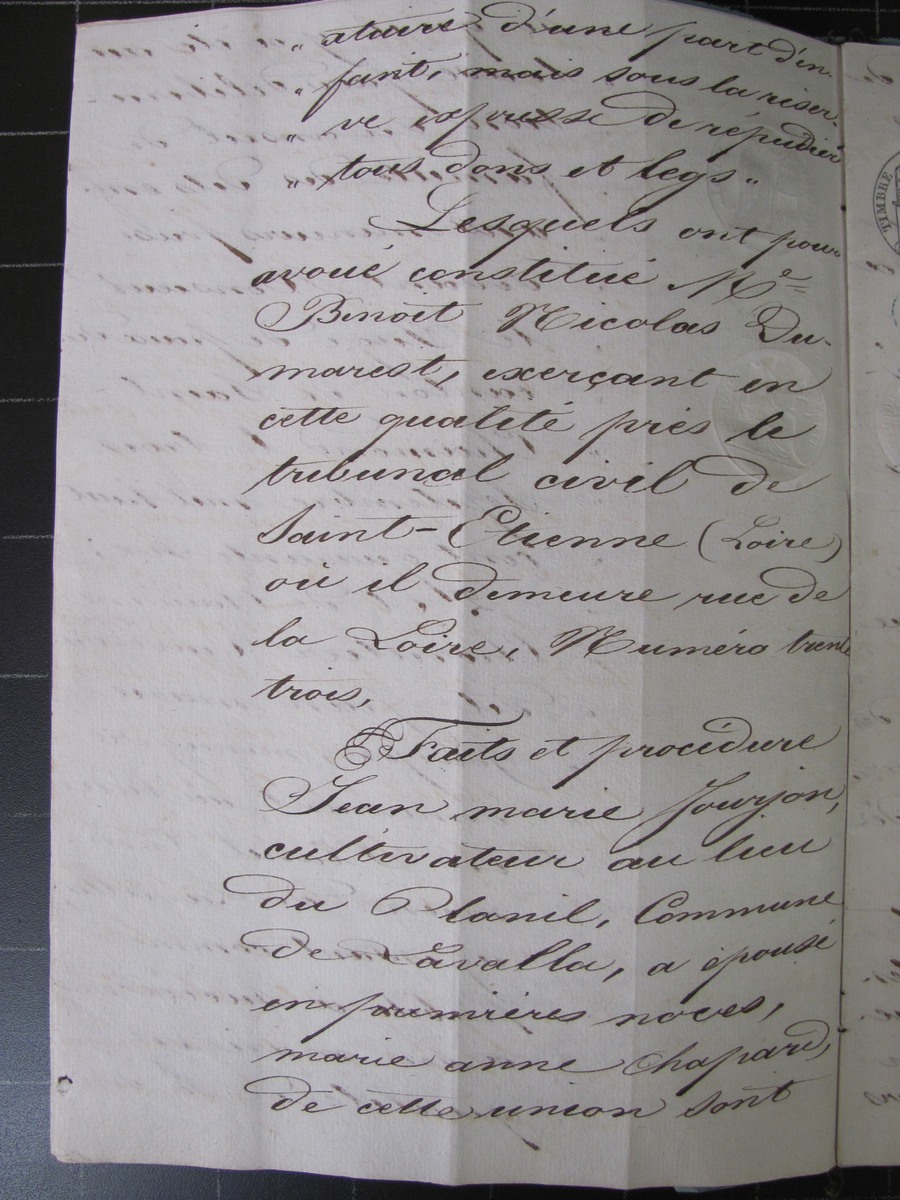 „ ataire d'une part d'en-
„ fant, mais sous la réser-
„ ve expresse de répudier
„ tous dons et legs „
Lesquels ont pour
avoué constitué Me
Benoît Nicolas Du-
marest, exerçant en
cette qualité près le
tribunal civil de
Saint-Etienne (Loire)
où il demeure rue de
la Loire, Numéro trente
trois,
Faits et procédure
Jean marie Jourjon,
cultivateur au lieu
du Planil, Commune
de Lavalla, a épousé
en premières noces,
marie anne Chapard,
de cette union sont
TIMBRE